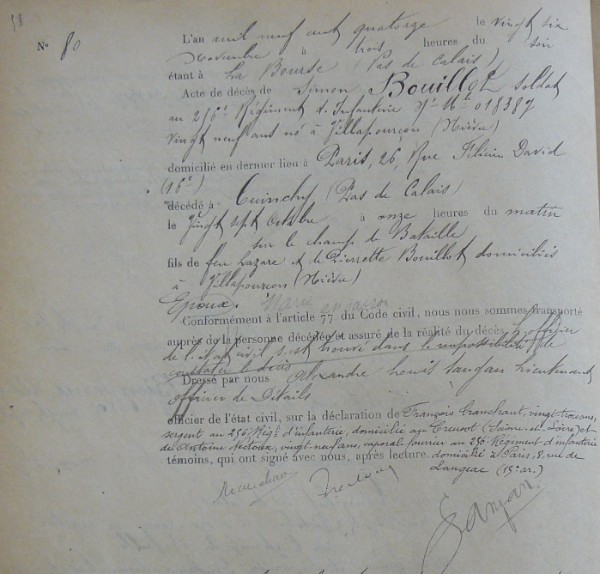 58
No 80
L'an mil neuf cent quatorze le vingt six
Novembre à trois heures du soir
étant à La Bourse (Pas de Calais)
Acte de décès de Simon Bouillot soldat
au 256e Régiment d'Infanterie No Mle 018387
vingt neuf ans né à Villapourçon (Nièvre)
domicilié en dernier lieu à Paris, 26, Rue Félicien David
(16e)
décédé à Cuinchy (Pas de Calais)
le vingt sept Octobre à onze heures du matin
sur le champ de Bataille
fils de feu Lazare et de Pierrette Bouillot domiciliés
à Villapourçon (Nièvre)
Epoux. Marie
Conformément à l'article 77 du Code civil, nous nous sommes transporté
auprès de la personne décédée et assuré de la réalité du décès. L'officier
de l'état civil s'est trouvé dans l'impossibilité de
constater le décès
Dressé par nous Alexandre Louis Sanjan lieutenant
officier de Détails
officier de l'état civil, sur la déclaration de François vingt-trois ans,
sergent au 256e Régt d'infanterie, domicilié au Creusot (Saône-et-Loire) et
de Antoine vingt-neuf ans, caporal fourrier au 256e Régiment d'infanterie
témoins, qui ont signé avec nous, après lecture. domicilié à Paris, 8, rue de
Langeac (15e ar.)
Sanjan